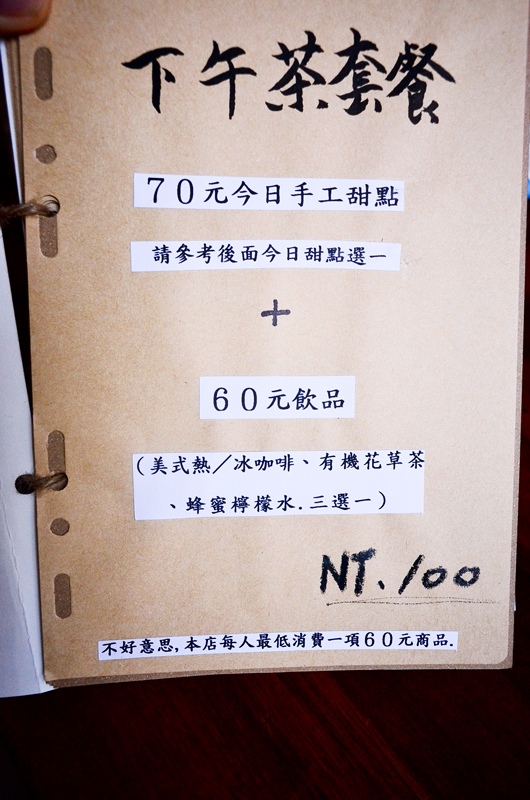 下午茶套餐
70元今日手工甜點
請參考後面今日甜點選一
+
60元飲品
(美式熱／冰咖啡、有機花草茶
、蜂蜜檸檬水.三選一)
NT.100
不好意思,本店每人最低消費一項60元商品.